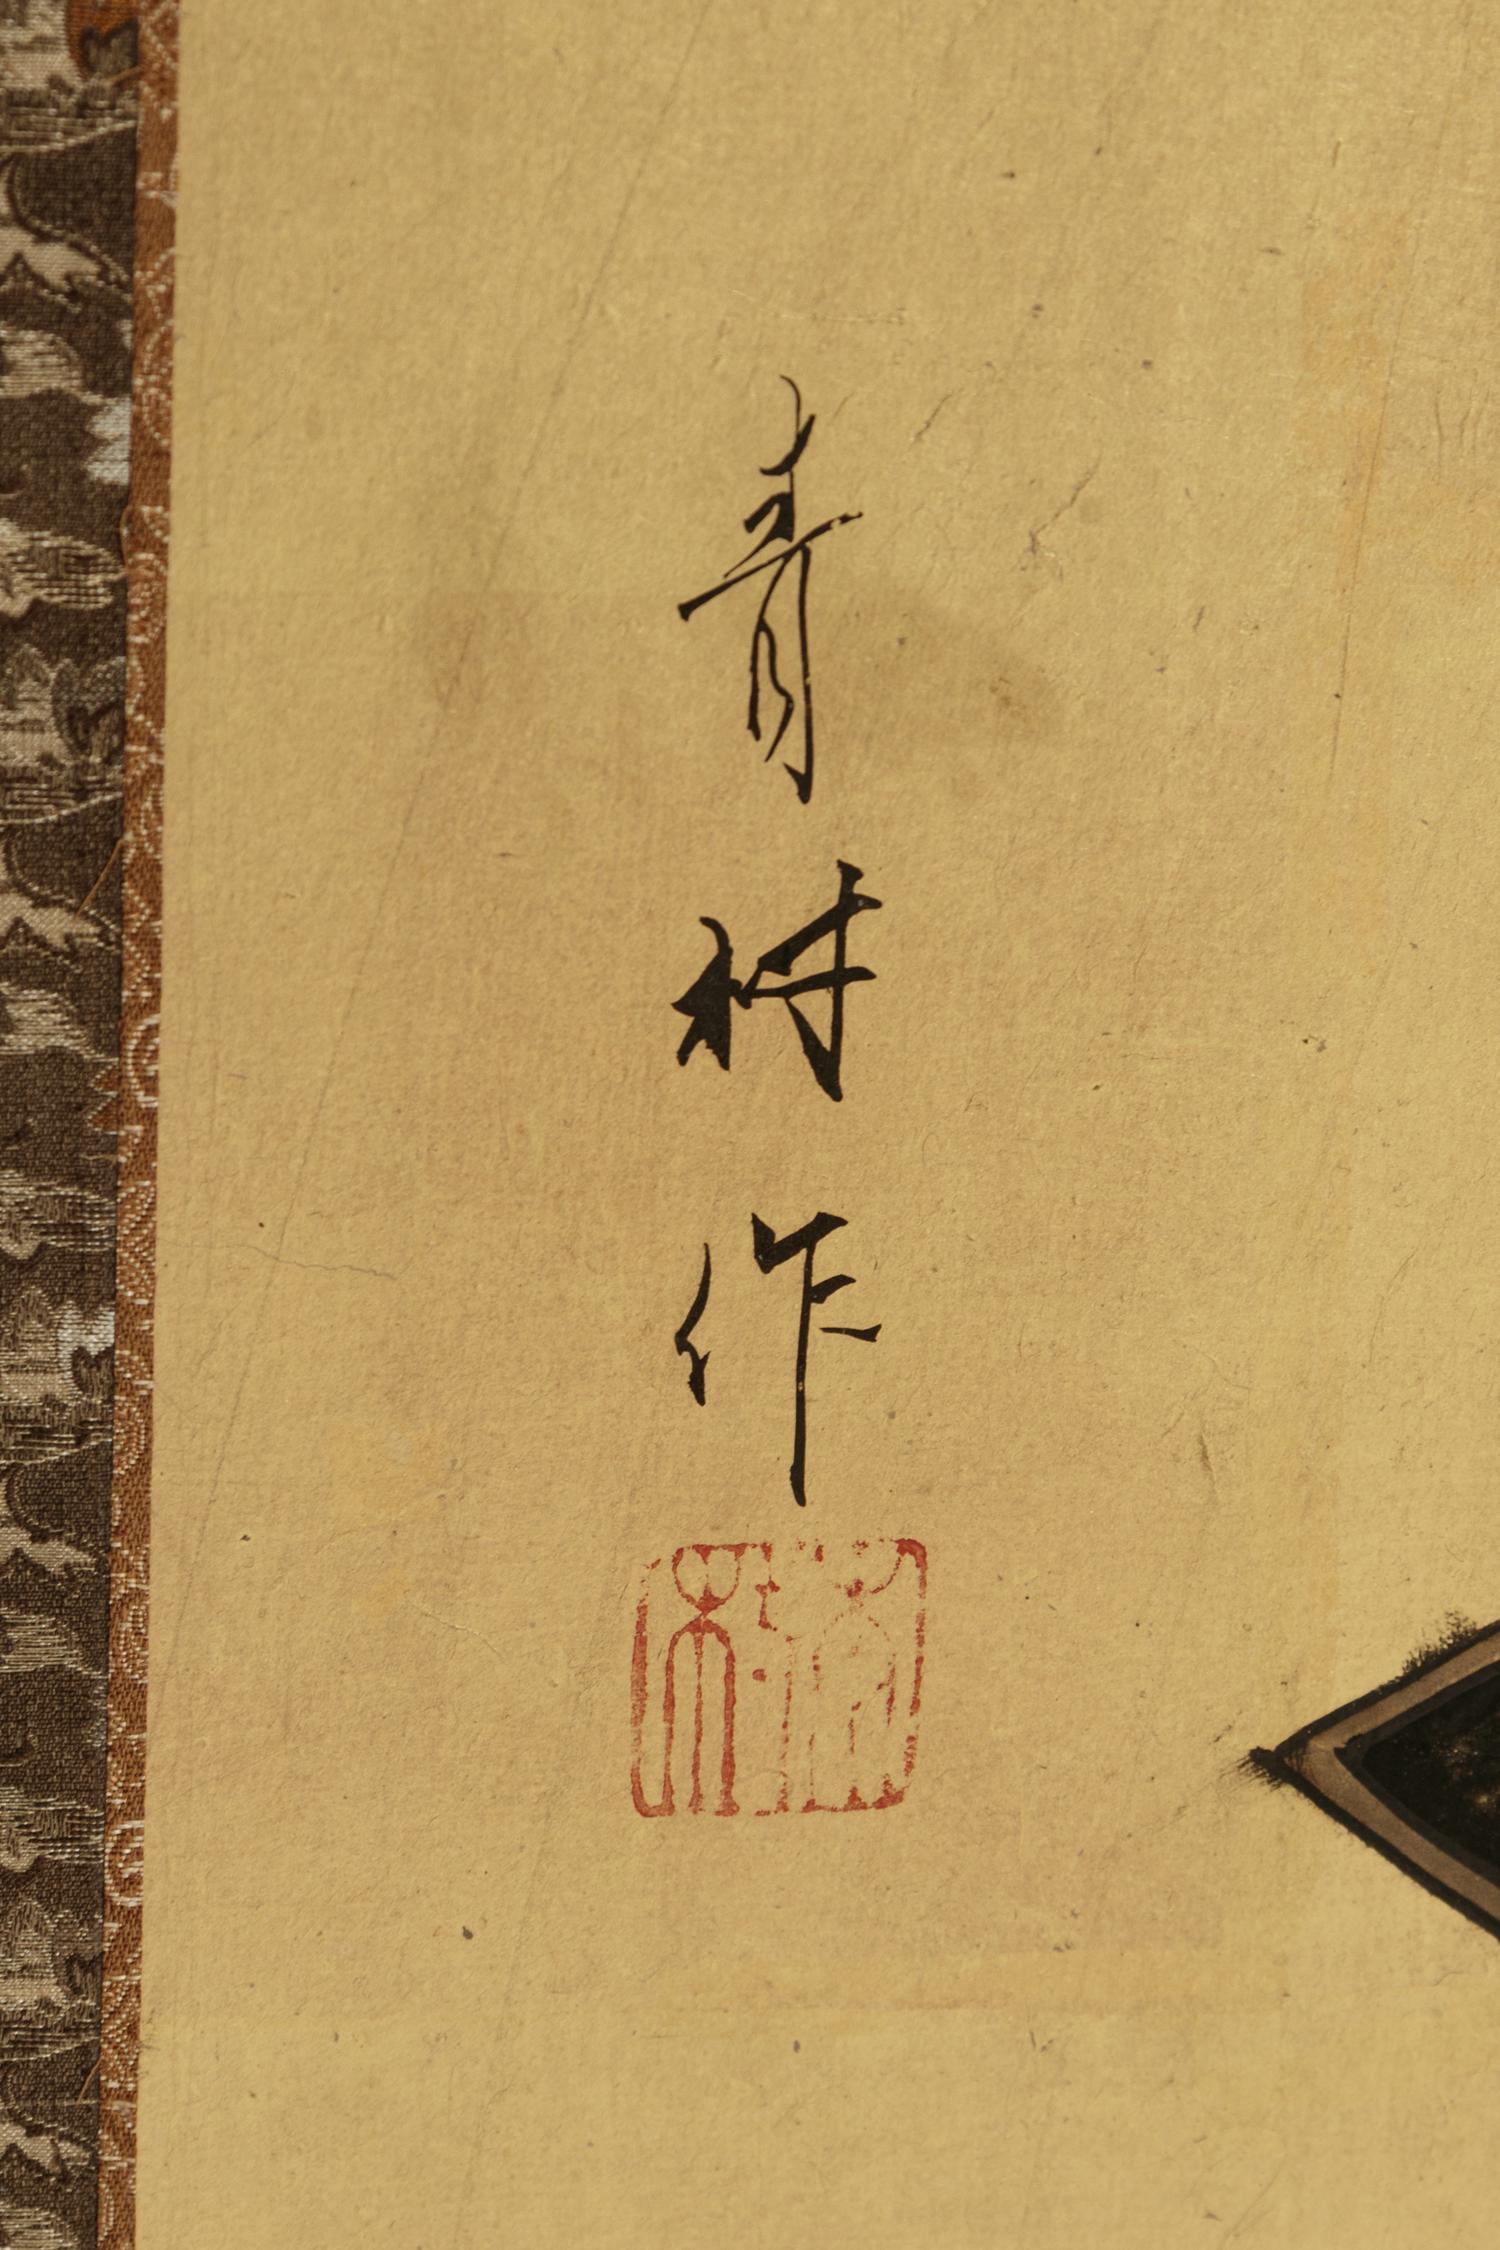 青村作